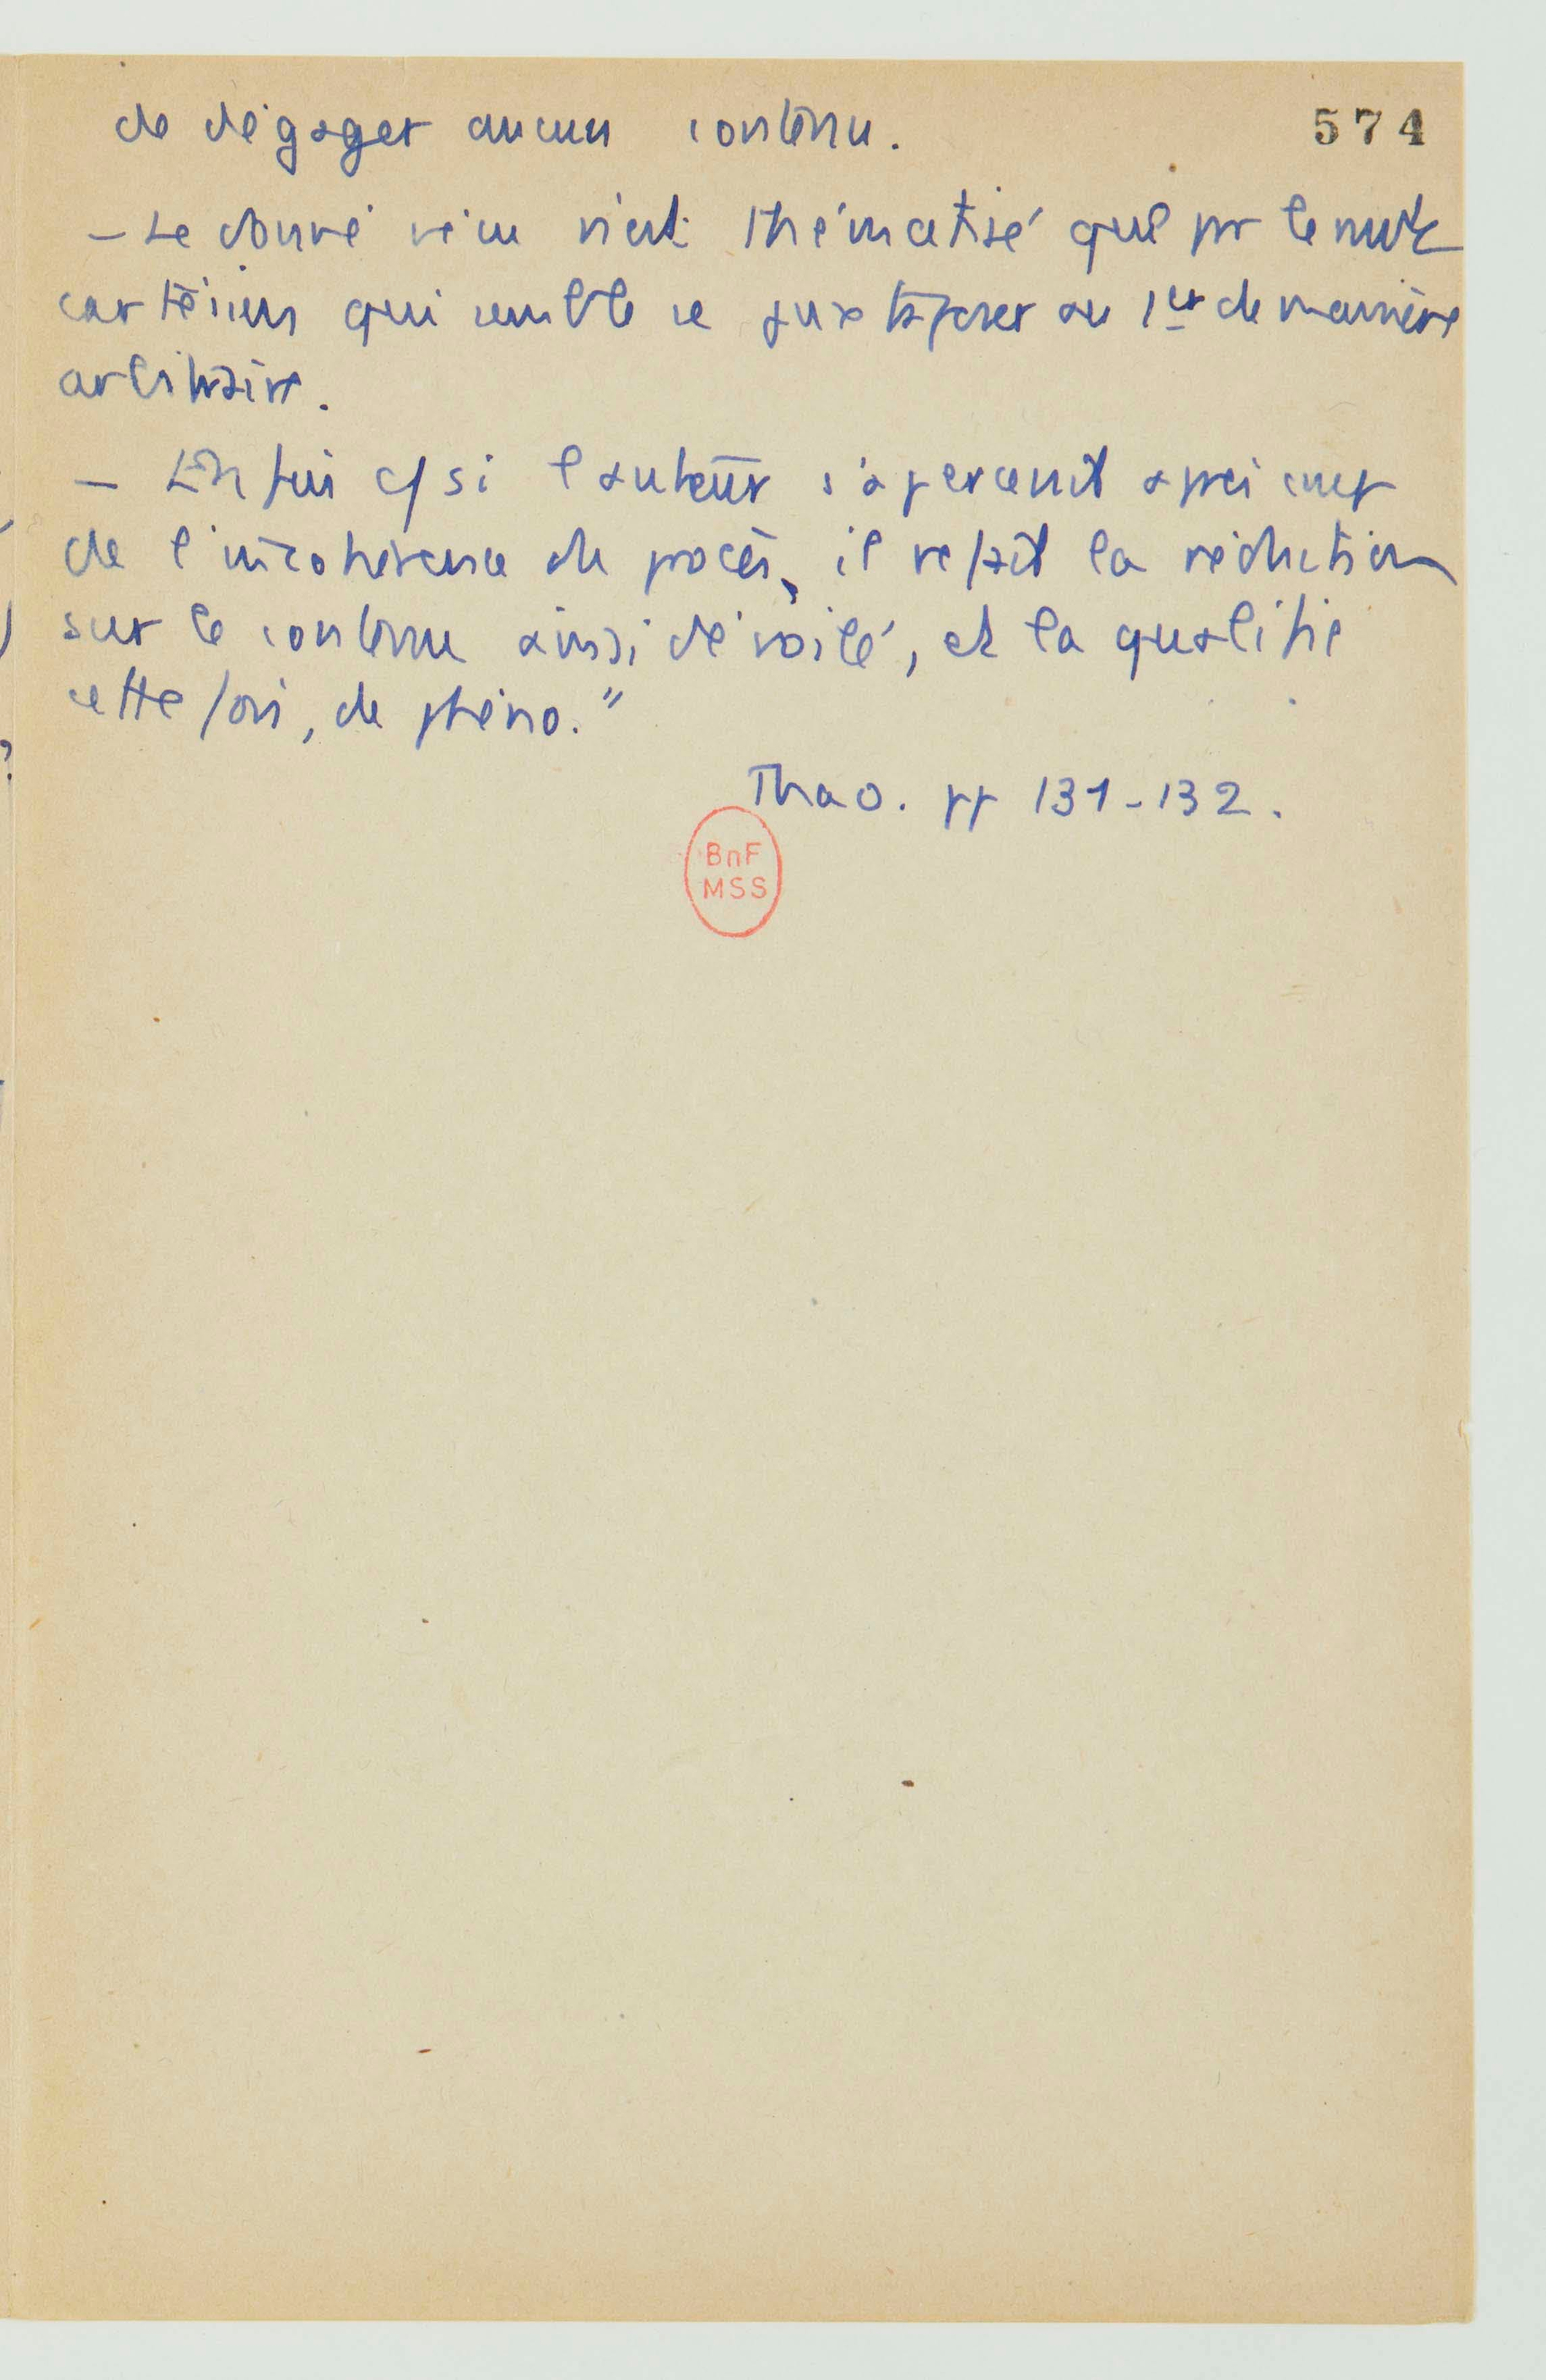 de dégager aucun contenu.
574
– Le donné vécu n'est thématisé que pr le mvt
cartésien qui semble se juxtaposer au 1er de manière
arbitraire.
– Enfin c/ si l'auteur s'apercevait après coup
de l'incohérence du procès, il refait la réduction
sur le contenu ainsi dévoilé, et la qualifie
cette fois, de phéno."
Thao. pp 131-132.
BnF
MSS